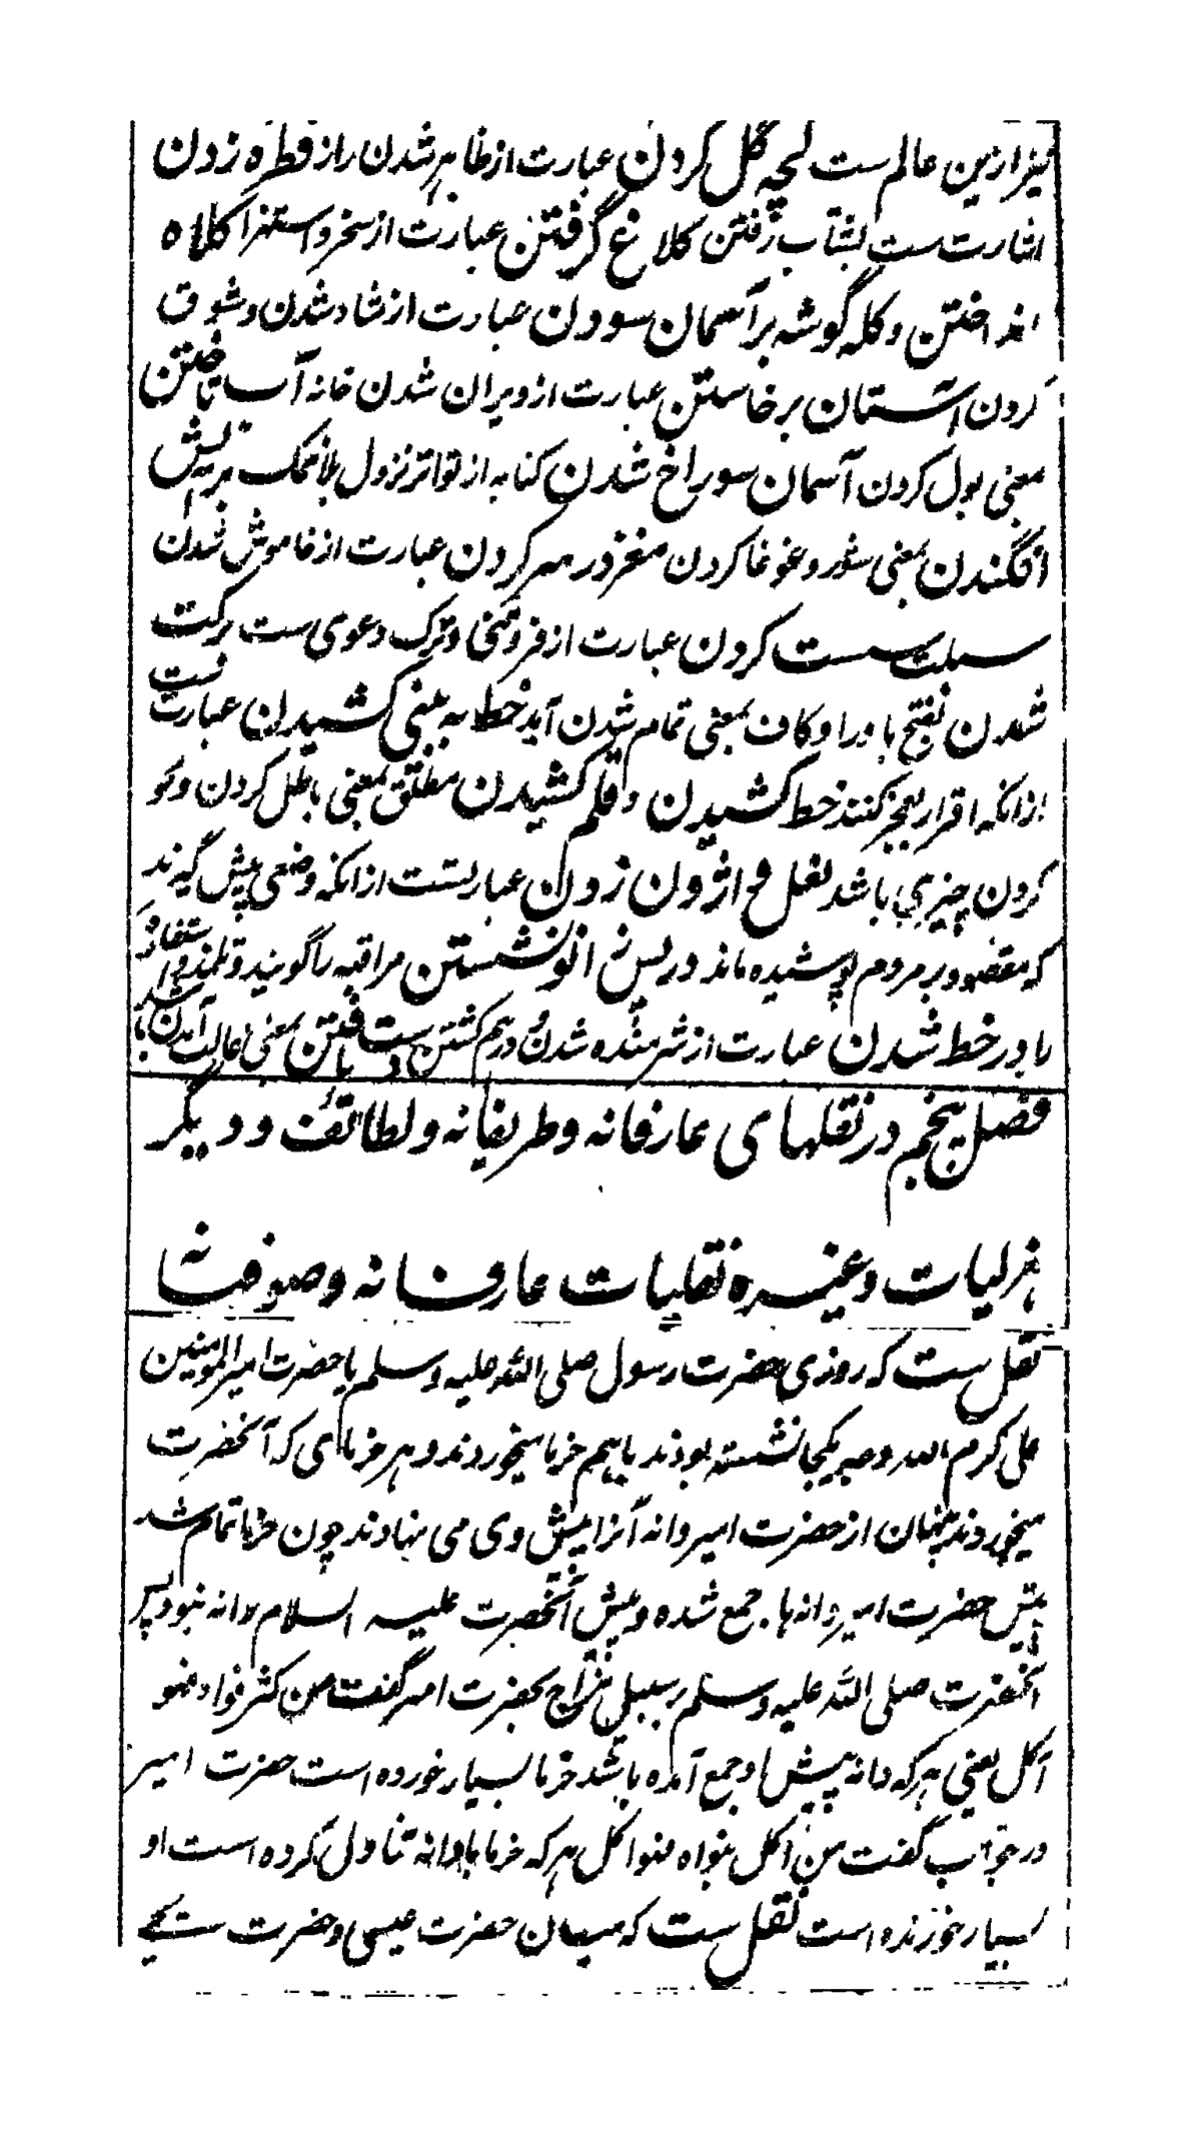 نیز ازین عالم ست لچه گل کردن عبارت از ظاهر شدن راز قطره زدن
اشارت ست بشتاب رفتن کلاغ گرفتن عبارت از سخر و استهزا کلاه
انداختن و کله گوشه بر آسمان سودن عبارت از شاد شدن و شوق
کردن آستان برخاستن عبارت از ویران شدن خانه آب تاختن
بمعنی بول کردن آسمان سوراخ شدن کنایه از تواتر نزول بلا نمک بریش
افگندن بمعنی شور و غوغا کردن مغز در سر کردن عبارت از خاموش شدن
سبلت سست کردن عبارت از فروتنی و ترک دعوی ست برکت
شدن بفتح با و را و کاف بمعنی تمام شدن آید خط به بینی کشیدن عبارت ست
ازانکه اقرار بعجز کنند خط کشیدن و قلم کشیدن مطلق بمعنی باطل کردن و محو
کردن چیزی باشد نعل واژون زدن عبارتست ازانکه وضعی پیش گیرند
که مقصود بر مردم پوشیده ماند در پس زانو نشستن مراقبه را گویند و تلمذ و استفاده
را در خط شدن عبارت از شرمنده شدن و درهم گشتن دست یافتن بمعنی غالب آمدن باشد
فصل پنجم در نقلهای عارفانه و ظریفانه و لطائف و دیگر
هزلیات و غیره نقلیات عارفانه و صوفیانه
نقل ست که روزی حضرت رسول صلی الله علیه وسلم با حضرت امیرالمومنین
علی کرم الله وجهه یکجا نشسته بودند باهم خرما میخوردند و هر خرمای که آنحضرت
میخوردند پنهان از حضرت امیر دانه آنرا پیش وی می نهادند چون خرما تمام شد
پیش حضرت امیر دانها جمع شده و پیش آنحضرت علیه السلام دانه نبود پس
آنحضرت صلی الله علیه وسلم بر سبیل مزاح بحضرت امیر گفت من کثر نواه فهو
آکل یعنی هرکه دانه پیش او جمع آمده باشد خرما بسیار خورده است حضرت امیر
در جواب گفت من اکل نواه فهو اکل هرکه خرما با دانه تناول کرده است او
بسیار خورنده است نقل ست که میان حضرت عیسی و حضرت یحیی